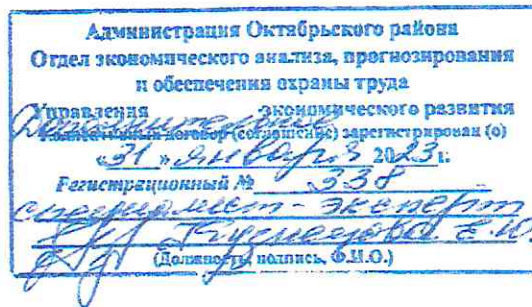 Администрация Октябрьского района
Отдел экономического анализа, прогнозирования
и обеспечения охраны труда
Управления экономического развития
Дополнительное
Коллективный договор (соглашение) зарегистрирован (о)
«31» января 2023 г.
Регистрационный № 338
специалист-эксперт
Кузнецова Е.Ю.
(Должность, подпись, Ф.И.О.)